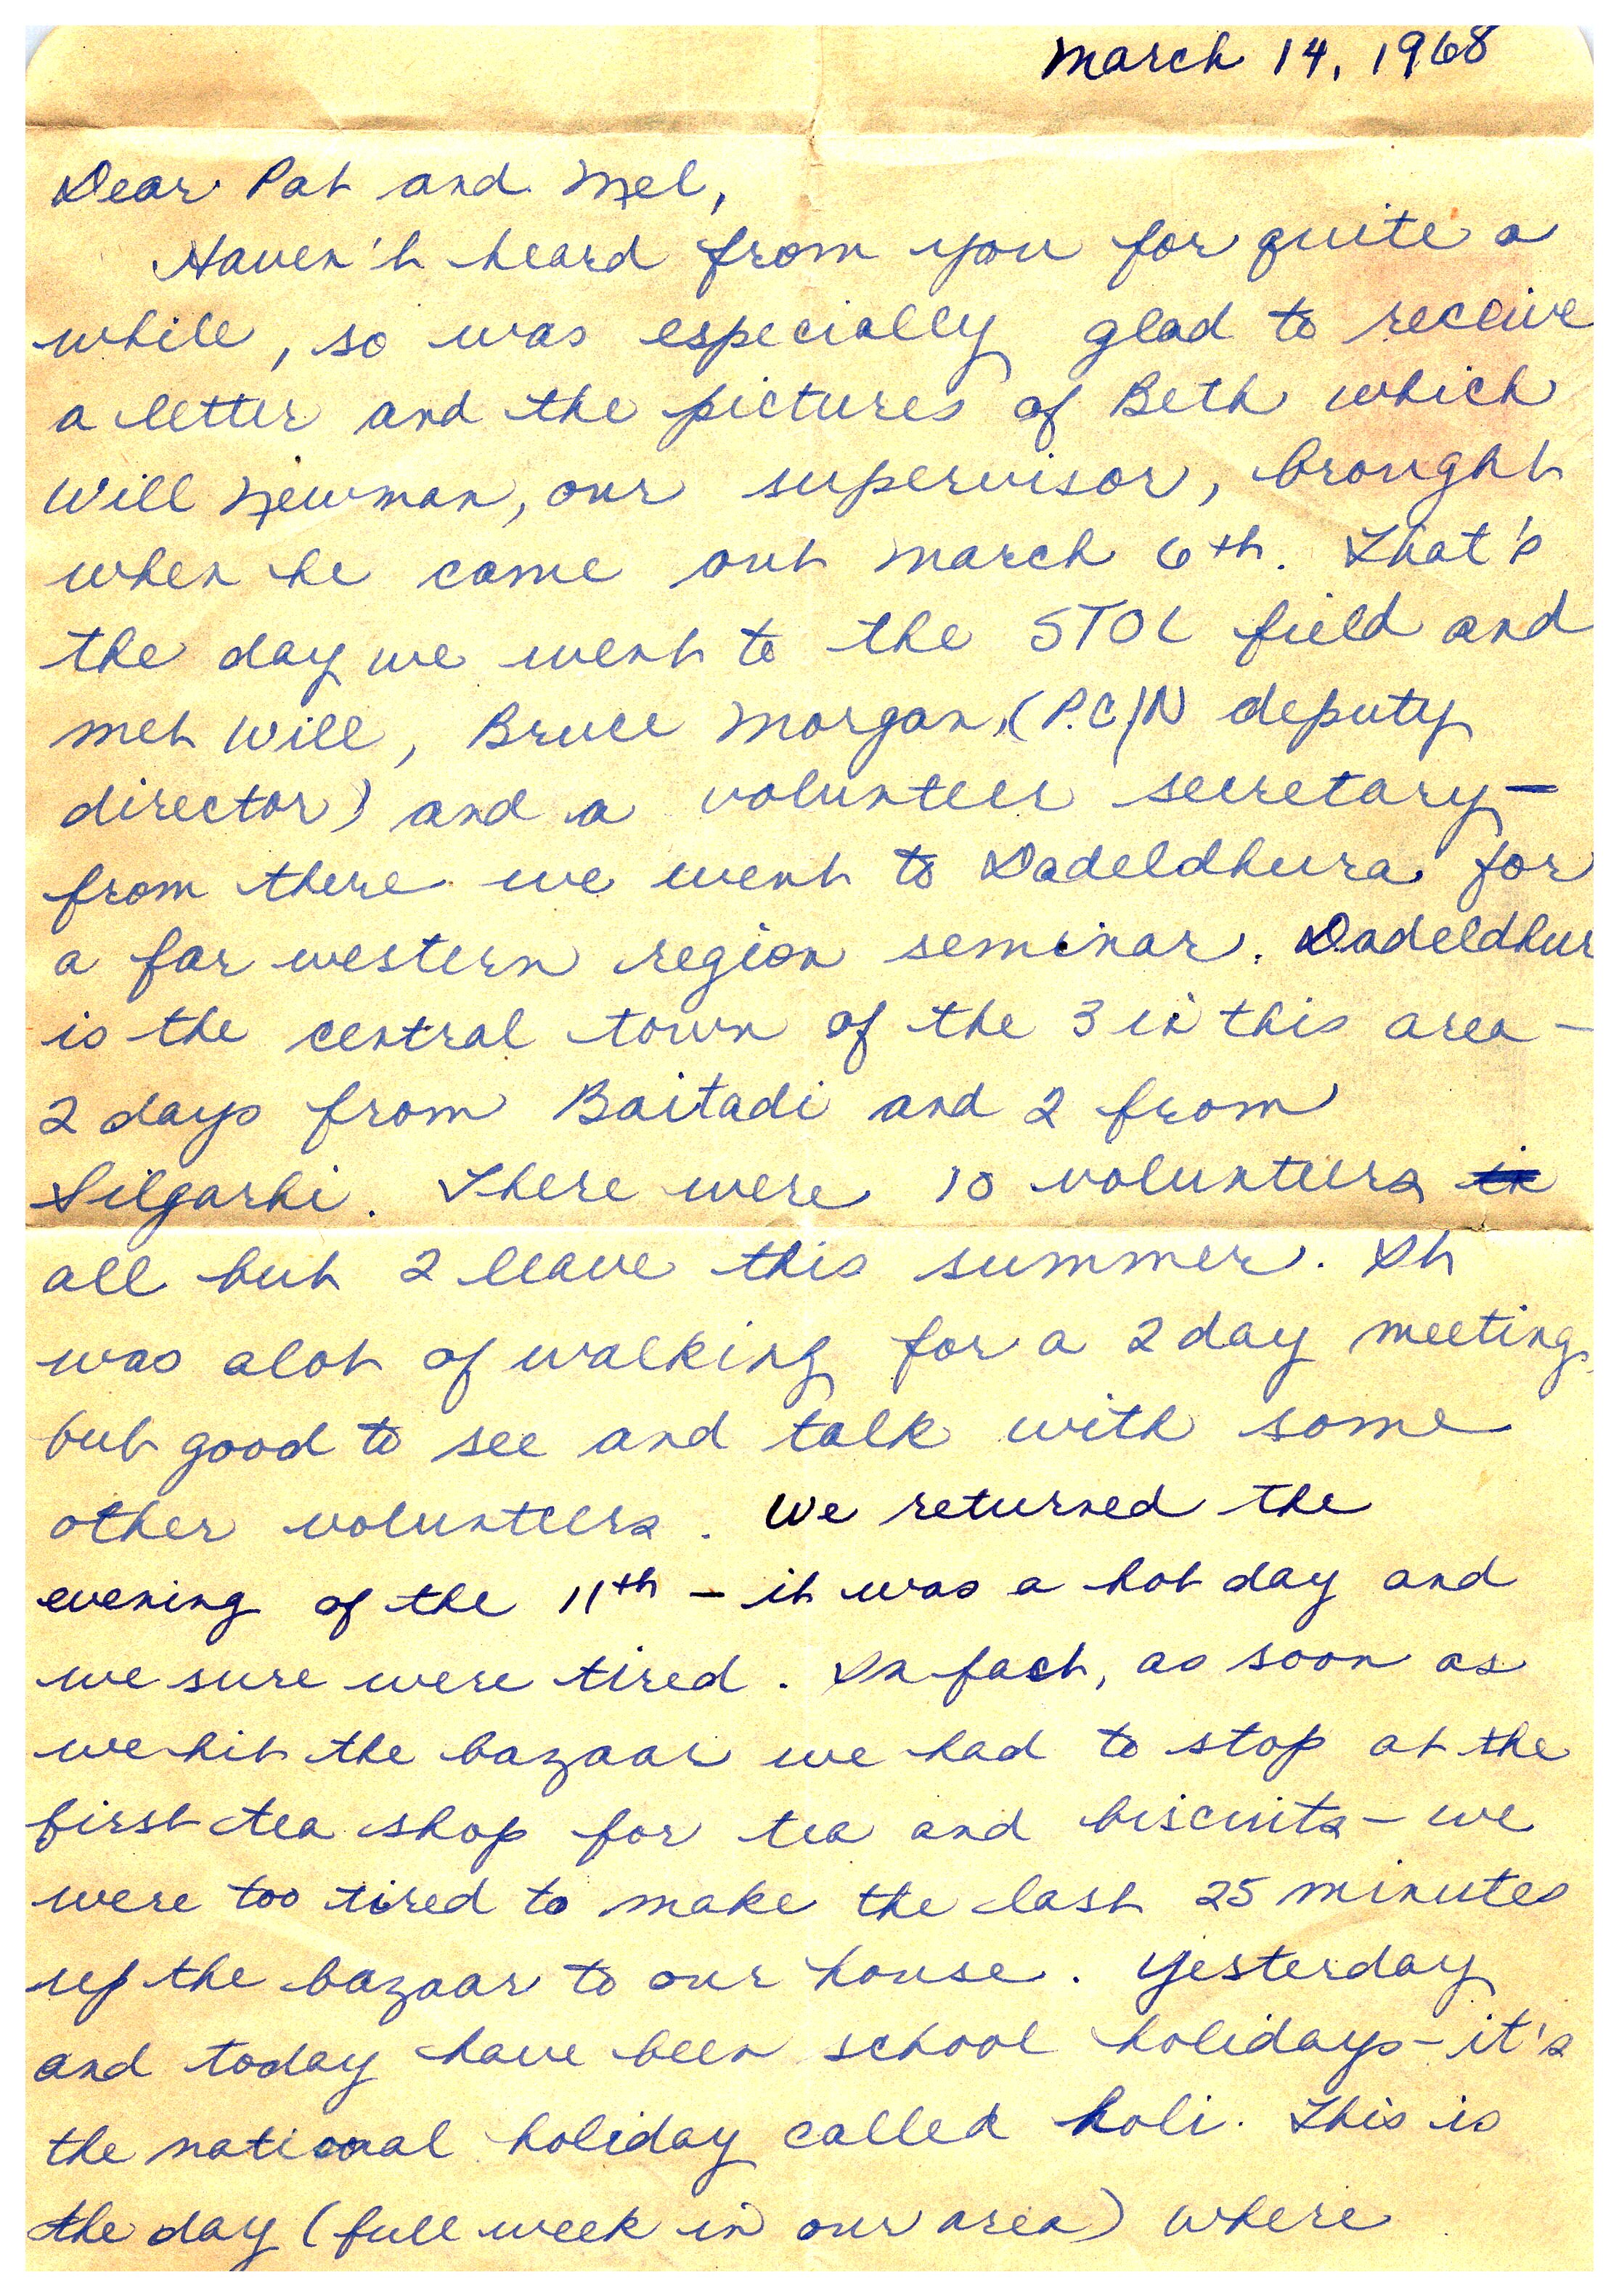 March 14, 1968
Dear Pat and Mel,
Haven't heard from you for quite a
while, so was especially glad to receive
a letter and the pictures of Beth which
Will Newman, our supervisor, brought
when he came out March 6th. That's
the day we went to the STOL field and
met Will, Bruce Morgan, (P.C/N deputy
director) and a volunteer secretary—
from there we went to Dadeldhura for
a far western region seminar. Dadeldhur
is the central town of the 3 in this area –
2 days from Baitadi and 2 from
Silgarhi. There were 10 volunteers in
all but 2 leave this summer. It
was alot of walking for a 2 day meeting,
but good to see and talk with some
other volunteers. We returned the
evening of the 11th – it was a hot day and
we sure were tired. In fact, as soon as
we hit the bazaar we had to stop at the
first tea shop for tea and biscuits – we
were too tired to make the last 25 minutes
up the bazaar to our house. Yesterday
and today have been school holidays – it's
the national holiday called holi. This is
the day (full week in our area) where